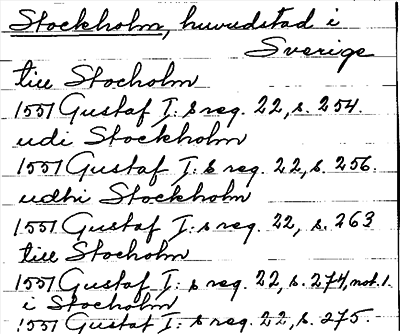 Stockholm, huvudstad i
Sverige
till Stocholm
1551 Gustaf I: s reg. 22, s. 254.
udi Stockholm
1551 Gustaf I: s reg. 22, s. 256.
udhi Stockholm
1551 Gustaf I: s reg. 22, s. 263
till Stockholm
1551 Gustaf I: s reg. 22, s. 274, not. 1.
i Stocholm
1551 Gustaf I: s reg. 22, s. 275.